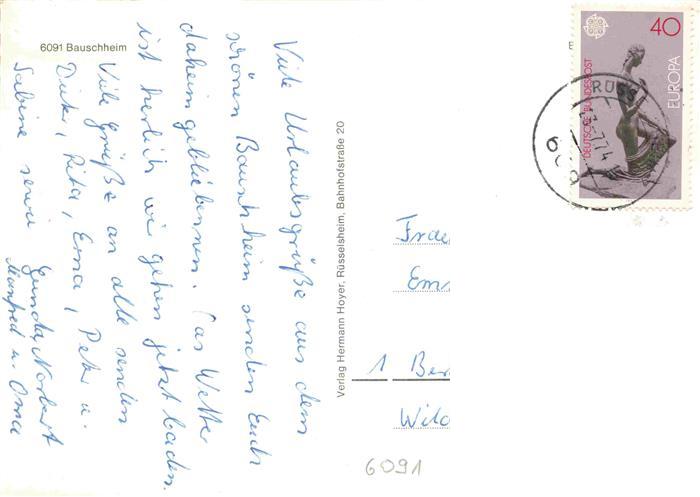 6091 Bauschheim
Viele Urlaubsgrüße aus dem
schönen Bauschheim senden Euch
daheimgebliebenen. Das Wetter
ist herlich wir gehen jetzt baden.
Viele Grüße an alle senden
Dieter, Rita, Erna, Peter u.
Sabine sowie Gunda, Norbert
Manfred u. Oma
Verlag Hermann Hoyer, Rüsselsheim, Bahnhofstraße 20
40
DEUTSCHE BUNDESPOST
EUROPA
CEPT
RÜSS
Ems
1 Ber
Wild
6091